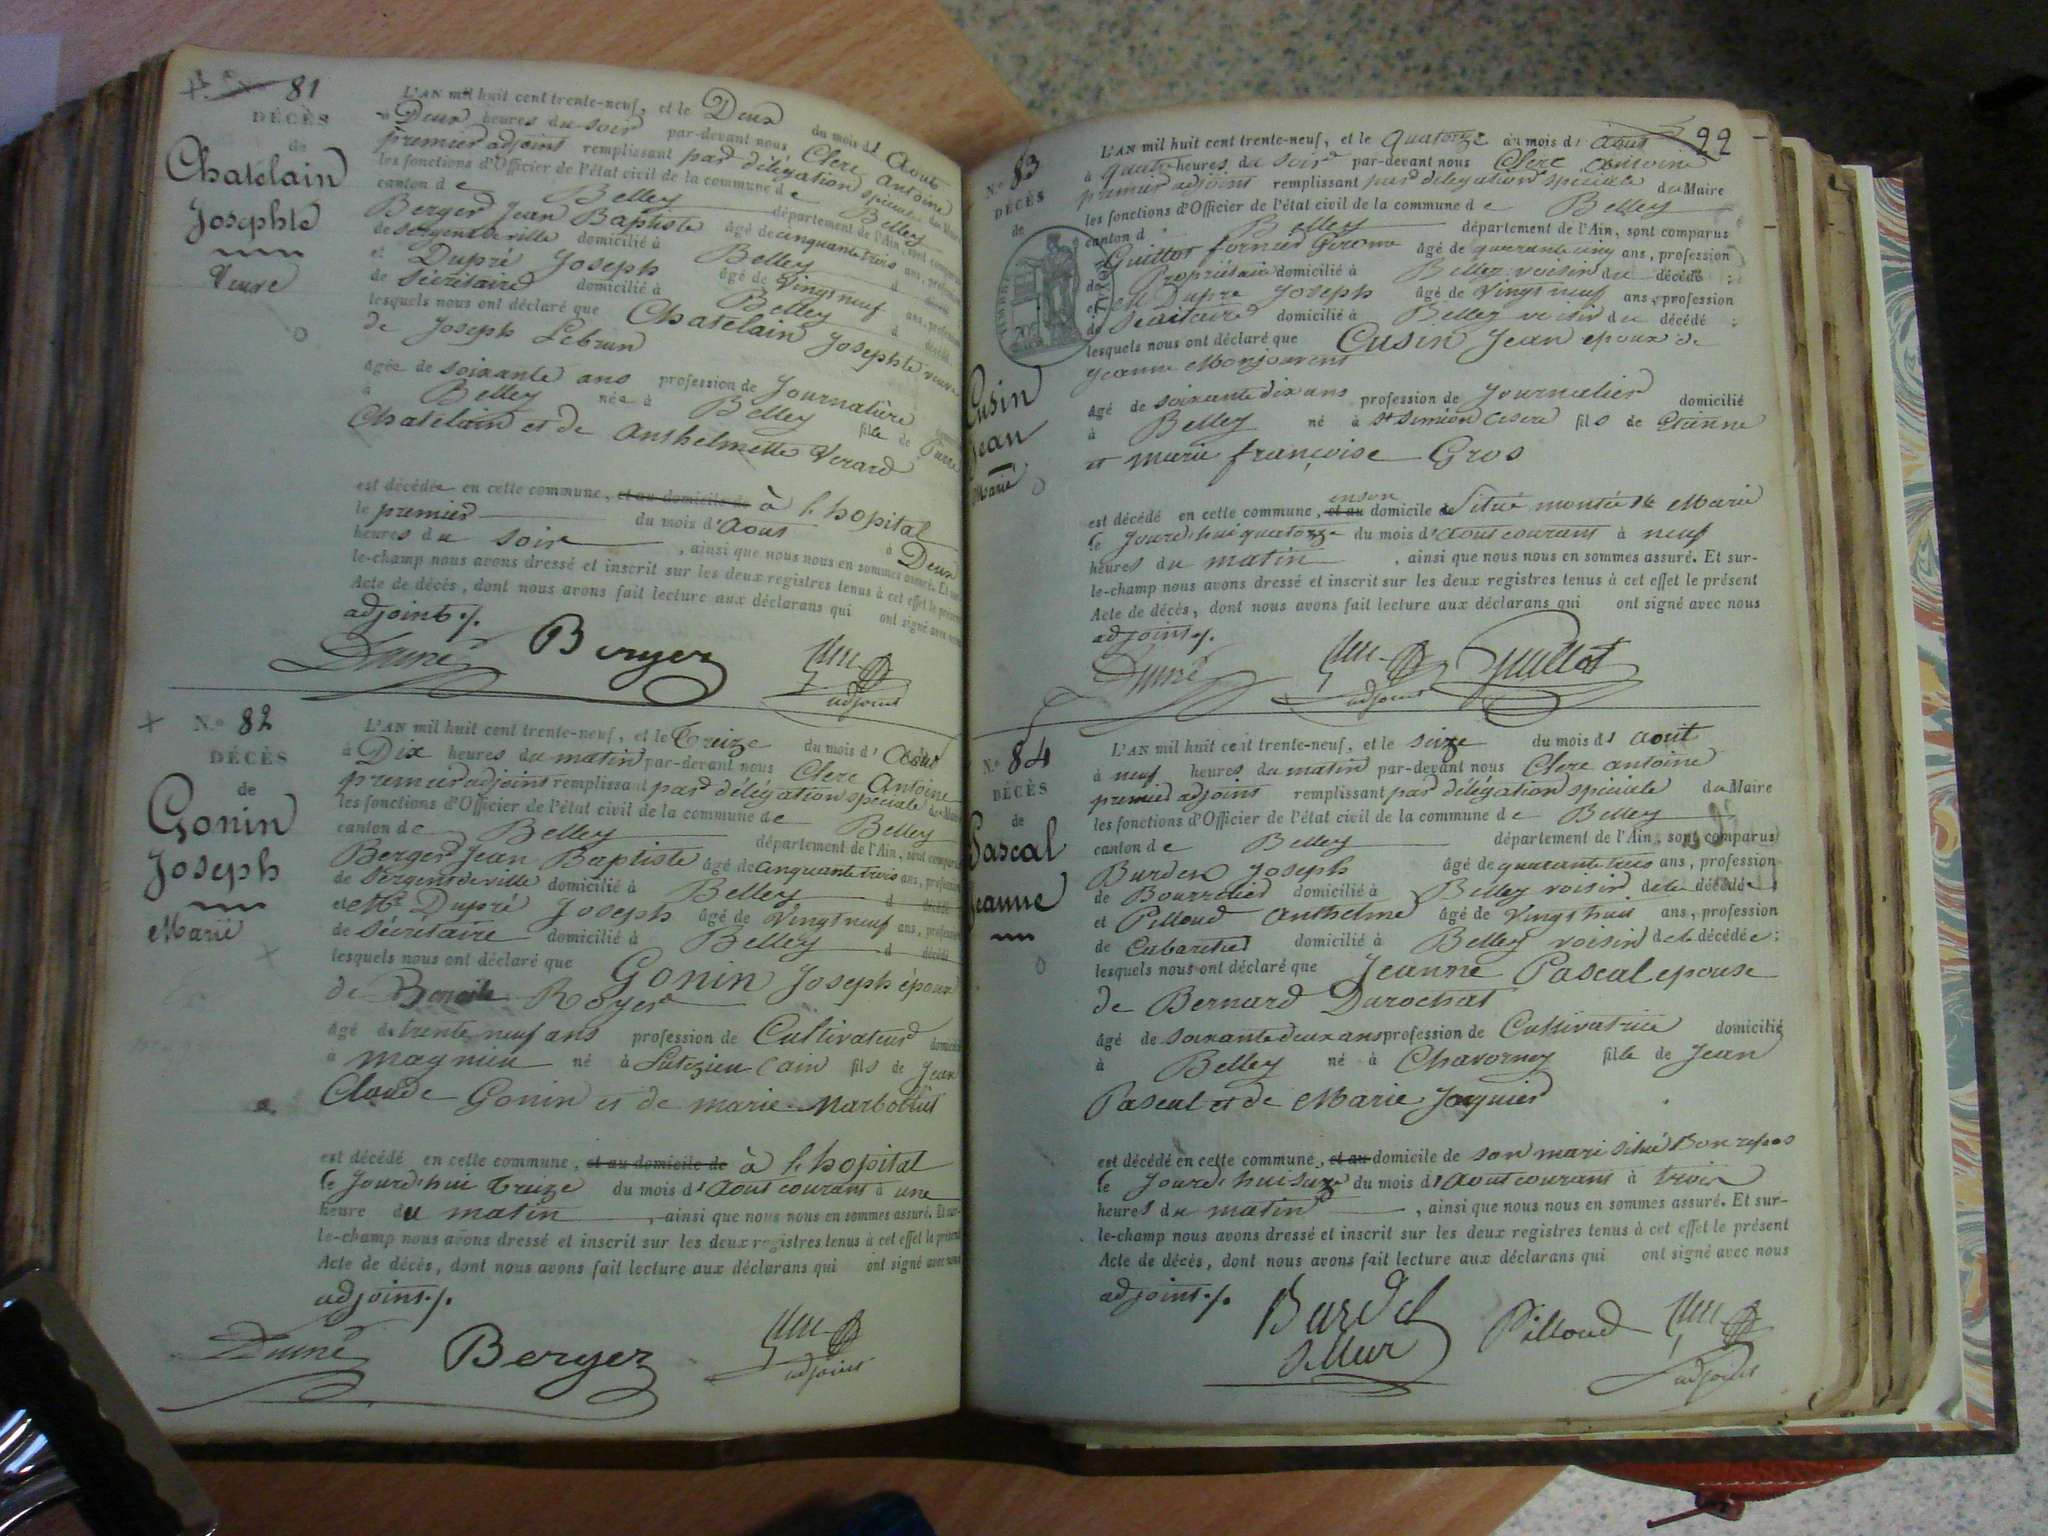 81
DÉCÈS
de
Chatelain
Josephte
Veuve
L'AN mil huit cent trente-neuf, et le Deux du mois d' Aout
à Deux heures du soir par-devant nous Clerc Antoine
premier adjoint remplissant par délégation spéciale du Maire
les fonctions d'Officier de l'état civil de la commune de Belley
canton de Belley département de l'Ain, sont comparus
Berger Jean Baptiste âgé de cinquante trois ans, profession
de sergent de ville domicilié à Belley d décédé
et Dupré Joseph âgé de vingt neuf ans, profession
de Sécrétaire domicilié à Belley d décédé
lesquels nous ont déclaré que Chatelain Josephte veuve
de Joseph Lebrun
âgée de soixante ans profession de Journalière
à Belley née à Belley fille de Pierre
Chatelain et de Anthelmette Verard
est décédée en cette commune, et au domicile de à l'hopital
le premier du mois d'Aout à Deux
heures du soir, ainsi que nous nous en sommes assuré. Et sur-
le-champ nous avons dressé et inscrit sur les deux registres tenus à cet effet le présent
Acte de décès, dont nous avons fait lecture aux déclarans qui ont signé avec nous
adjoint./.
Berger
adjoint
N.º 82
DÉCÈS
de
Gonin
Joseph
Marié
L'AN mil huit cent trente-neuf, et le Treize du mois d' Aout
à Dix heures du matin par-devant nous Clerc Antoine
premier adjoint remplissant par délégation spéciale du Maire
les fonctions d'Officier de l'état civil de la commune de Belley
canton de Belley département de l'Ain, sont comparus
Berger Jean Baptiste âgé de cinquante trois ans, profession
de Sergent de ville domicilié à Belley d décédé
et Mr Dupré Joseph âgé de vingt neuf ans, profession
de Sécrétaire domicilié à Belley d décédé
lesquels nous ont déclaré que Gonin Joseph époux
de Benoite Royer
âgé de trente neuf ans profession de Cultivateur domicilié
à magnieu né à (ain) fils de Jean
Claude Gonin et de marie
est décédé en cette commune, et au domicile de à l'hopital
le Jourd'hui Treize du mois d'Aout courant à une
heure du matin, ainsi que nous nous en sommes assuré. Et sur-
le-champ nous avons dressé et inscrit sur les deux registres tenus à cet effet le présent
Acte de décès, dont nous avons fait lecture aux déclarans qui ont signé avec nous
adjoint./.
Berger
adjoint
22
N.º 83
DÉCÈS
de
Cusin
Jean
Marié
L'AN mil huit cent trente-neuf, et le Quatorze du mois d' Aout
à quatre heures du soir par-devant nous Clerc Antoine
premier adjoint remplissant par délégation spéciale du Maire
les fonctions d'Officier de l'état civil de la commune de Belley
canton d Belley département de l'Ain, sont comparus
Guillot âgé de quarante cinq ans, profession
de Propriétaire domicilié à Belley voisin du décédé ;
et Dupré Joseph âgé de vingt neuf ans, profession
de Sécrétaire domicilié à Belley voisin du décédé ;
lesquels nous ont déclaré que Cusin Jean époux de
Jeanne
âgé de soixante dix ans profession de Journalier domicilié
à Belley né à fils de Etienne
et marie françoise Gros
en son
est décédé en cette commune, et au domicile de Situé montée Ste Marie
le Jourd'hui quatorze du mois d'Aout courant à neuf
heures du matin, ainsi que nous nous en sommes assuré. Et sur-
le-champ nous avons dressé et inscrit sur les deux registres tenus à cet effet le présent
Acte de décès, dont nous avons fait lecture aux déclarans qui ont signé avec nous
adjoint./.
adjoint
Guillot
N.º 84
DÉCÈS
de
Pascal
Jeanne
L'AN mil huit cent trente-neuf, et le seize du mois d' aout
à neuf heures du matin par-devant nous Clerc antoine
premier adjoint remplissant par délégation spéciale du Maire
les fonctions d'Officier de l'état civil de la commune de Belley
canton de Belley département de l'Ain, sont comparus
Joseph âgé de quarante trois ans, profession
de Bourrelier domicilié à Belley voisin de la décédée ;
et Pilloud Anthelme âgé de vingt huit ans, profession
de Cabaretier domicilié à Belley voisin de la décédée ;
lesquels nous ont déclaré que Jeanne Pascal épouse
de Bernard Durochat
âgé de soixante deux ans profession de Cultivatrice domicilié
à Belley né à Chavornay fille de Jean
Pascal et de Marie Jaquier
est décédé en cette commune, et au domicile de son mari situé Bon repos
le Jourd'hui seize du mois d'Aout courant à trois
heures du matin, ainsi que nous nous en sommes assuré. Et sur-
le-champ nous avons dressé et inscrit sur les deux registres tenus à cet effet le présent
Acte de décès, dont nous avons fait lecture aux déclarans qui ont signé avec nous
adjoint./.
Pilloud
adjoint